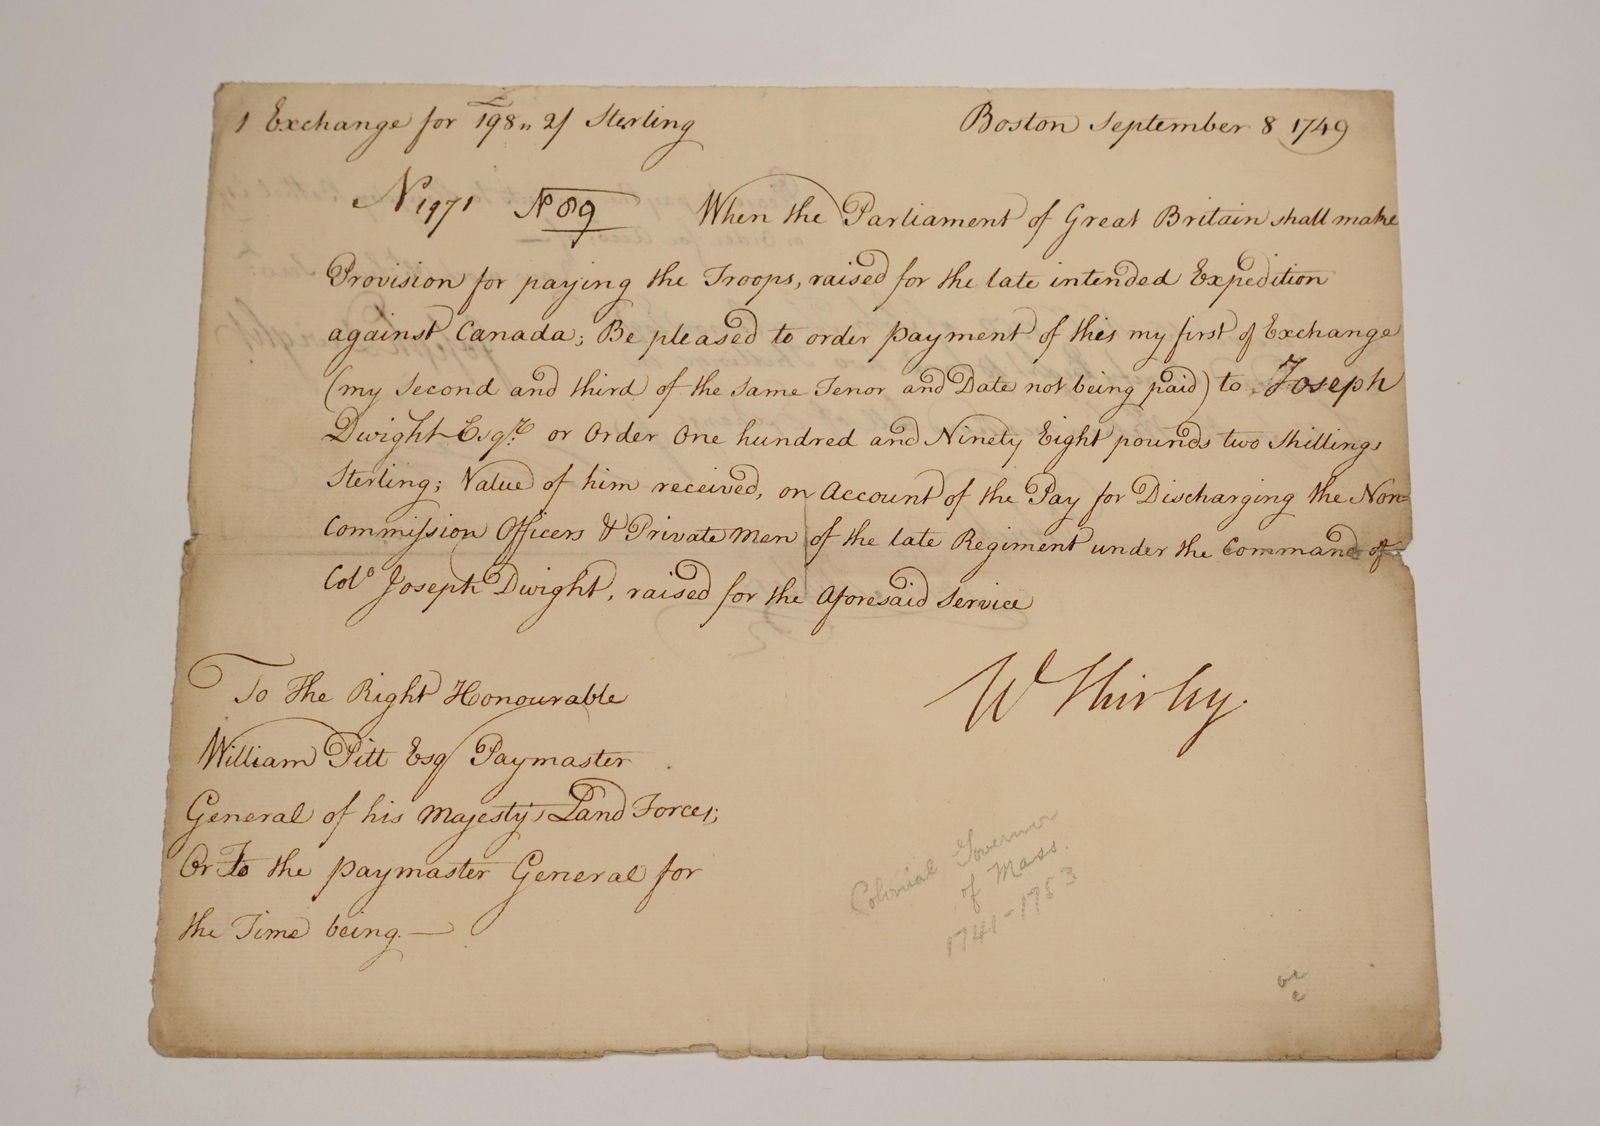 1 Exchange for £198,, 2/ Sterling Boston September 8 1749
N 1971 No 89 When the Parliament of Great Britain shall make
Provision for paying the Troops, raised for the late intended Expedition
against Canada; Be pleased to order payment of this my first of Exchange
(my Second and third of the same Tenor and Date not being paid) to Joseph
Dwight Esqr. or Order One hundred and Ninety Eight pounds two Shillings
Sterling; Value of him received, on Account of the Pay for Discharging the Non=
Commission Officers & Private Men of the late Regiment under the Command of
Colo Joseph Dwight, raised for the Aforesaid Service
W Shirley.
To The Right Honourable
William Pitt Esq Paymaster
General of his Majesty's Land Forces;
Or To the paymaster General for
the Time being.—
Colonial Governor
of Mass.
1741-1753